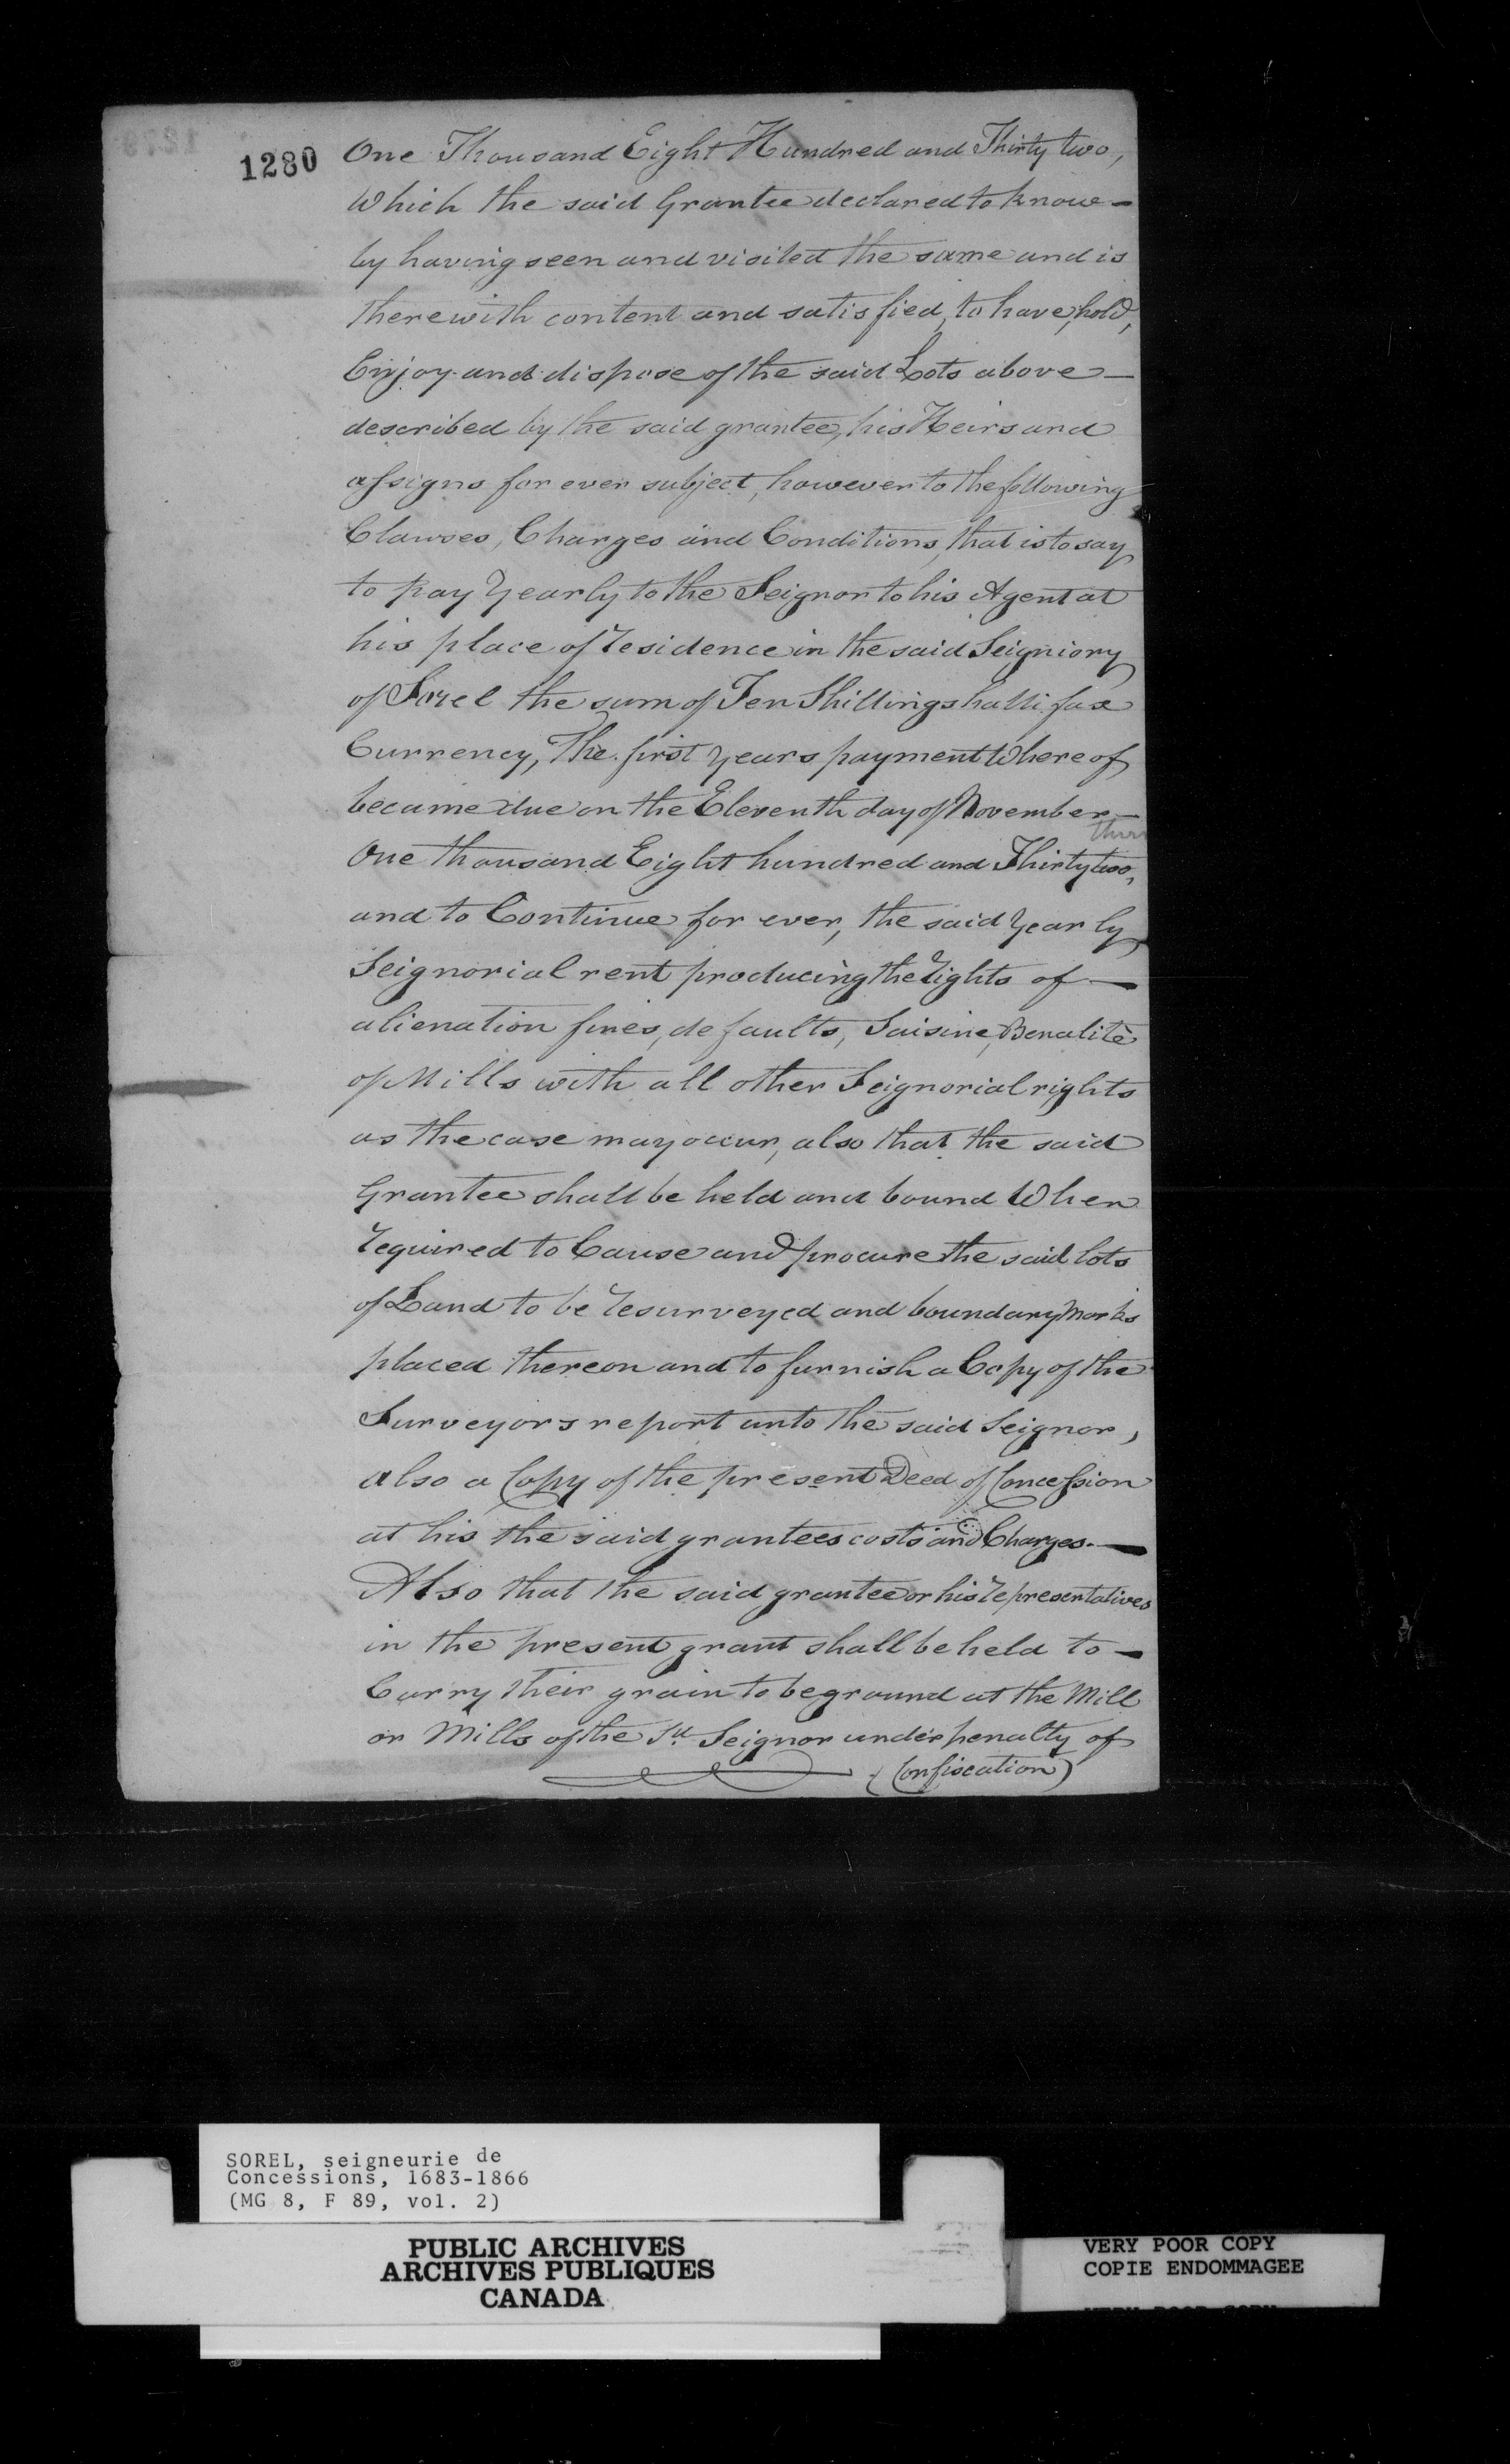 1280
One Thousand Eight Hundred and Thirty two,
Which the said Grantee declared to know -
by having seen and visited the same and is
therewith content and satisfied, to have, hold,
Enjoy and dispose of the said Lots above -
described by the said grantee, his Heirs and
assigns for ever subject, however to the following
Clauses, Charges and Conditions, that is to say
to pay Yearly to the Seignor to his Agent at
his place of residence in the said Seigniory
of Sorel the sum of Ten Shillings hallifax
Currency, The first Years payment Whereof
became due on the Eleventh day of November -
One thousand Eight hundred and Thirty two,
and to Continue for ever, the said Yearly
Seignorial rent producing the rights of -
alienation fines, defaults, Saisine, Banalitè
of Mills with all other Seignorial rights
as the case may occur, also that the said
Grantee shall be held and bound When
required to Cause and procure the said lots
of Land to be resurveyed and boundary Marks
placed thereon and to furnish a Copy of the
Surveyors report unto the said Seignor,
also a Copy of the present Deed of Concession
at his the said grantees costs and Charges. -
Also that the said grantee or his representatives
in the present grant shall be held to -
Carry their grain to be ground at the Mill
or Mills of the Sd. Seignor under penalty of
(Confiscation)
SOREL, seigneurie de
Concessions, 1683-1866
(MG 8, F 89, vol. 2)
PUBLIC ARCHIVES
ARCHIVES PUBLIQUES
CANADA
VERY POOR COPY
COPIE ENDOMMAGEE